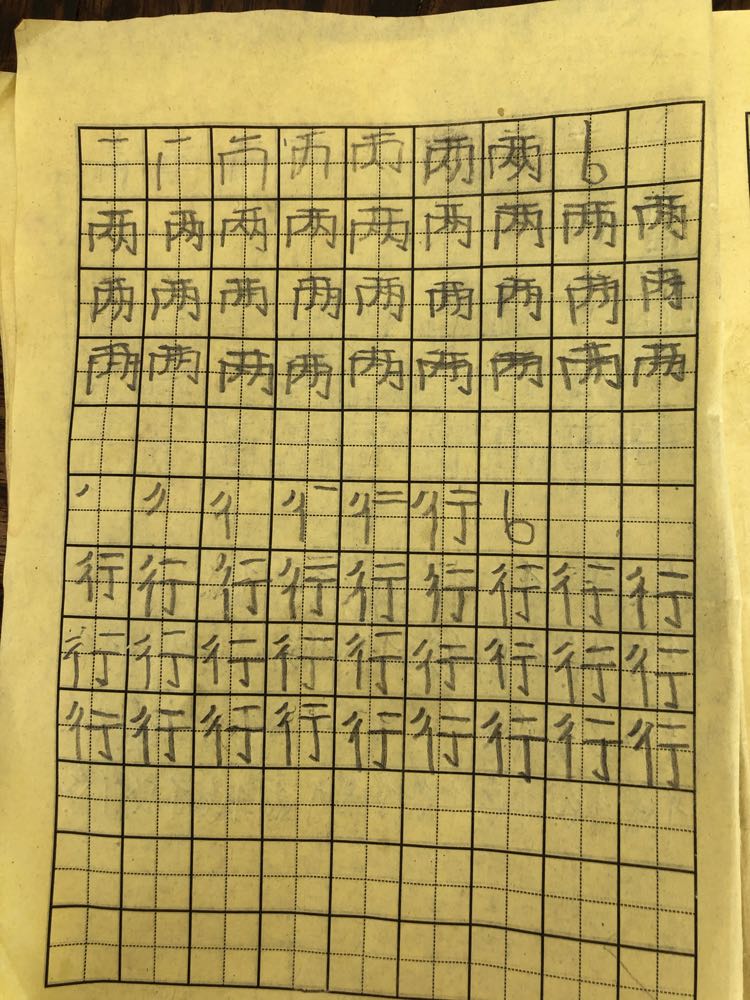 一 两 两 6
两 两 两 两 两 两 两 两 两
两 两 两 两 两 两 两 两 两
两 两 两 两 两 两 两 两 两
彳 行 6
行 行 行 行 行 行 行 行 行
行 行 行 行 行 行 行 行 行
行 行 行 行 行 行 行 行 行